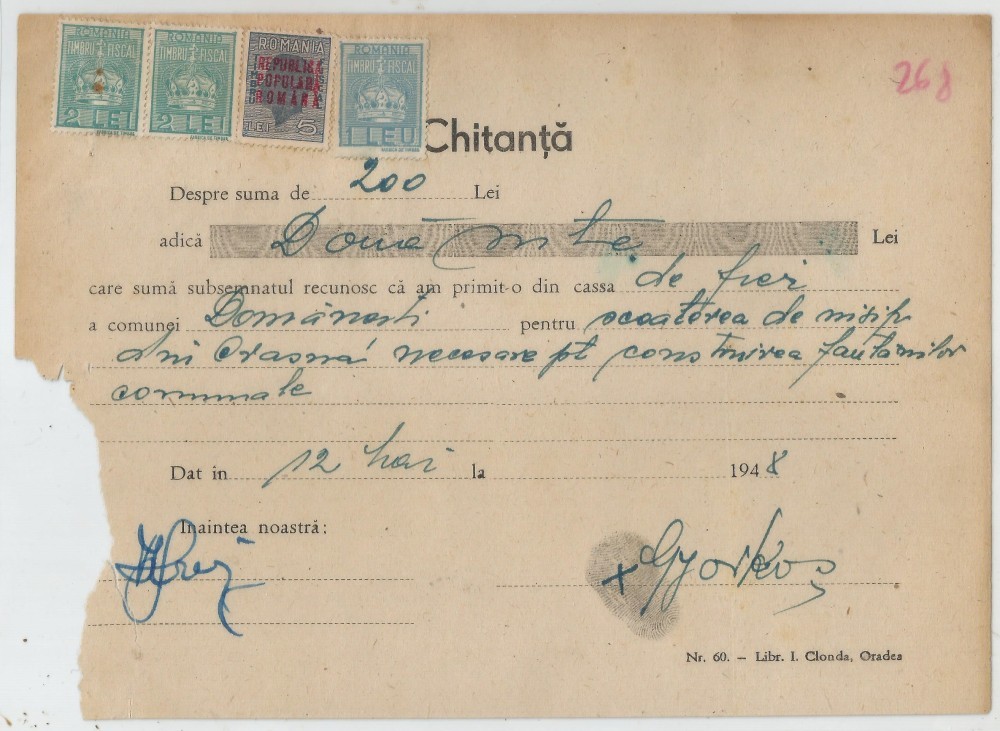 ROMANIA TIMBRU FISCAL 2 LEI
ROMANIA TIMBRU FISCAL 2 LEI
ROMÂNIA REPUBLICA POPULARĂ ROMÂNĂ LEI 5
ROMANIA TIMBRU FISCAL LEU
268
Chitanță
Despre suma de 200 Lei
adică Doua sute Lei
care sumă subsemnatul recunosc că am primit-o din cassa de fier
a comunei Domănești pentru scoaterea de nisip
din Crasna necesare pt construirea fântânilor
comunale
Dat in 12 Mai la 1948
Inaintea noastră:
+ Gyorkos
Nr. 60. — Libr. I. Clonda, Oradea